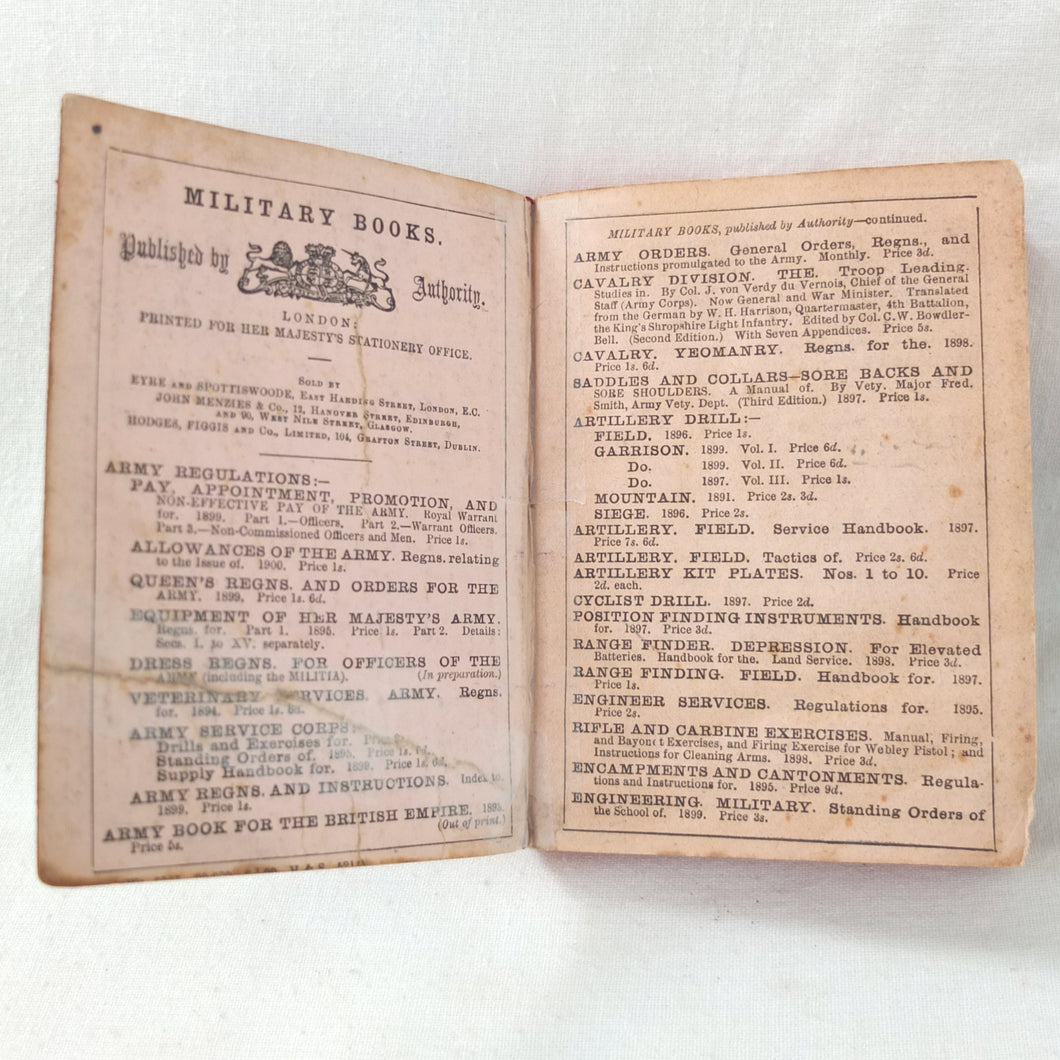 MILITARY BOOKS.
Published by Authority.
LONDON:
PRINTED FOR HER MAJESTY'S STATIONERY OFFICE.
SOLD BY
EYRE AND SPOTTISWOODE, EAST HARDING STREET, LONDON, E.C.
JOHN MENZIES & Co., 12, HANOVER STREET, EDINBURGH,
AND 90, WEST NILE STREET, GLASGOW.
HODGES, FIGGIS AND Co., LIMITED, 104, GRAFTON STREET, DUBLIN.
ARMY REGULATIONS:—
PAY, APPOINTMENT, PROMOTION, AND
NON-EFFECTIVE PAY OF THE ARMY. Royal Warrant
for. 1899. Part 1.—Officers. Part 2.—Warrant Officers.
Part 3.—Non-Commissioned Officers and Men. Price 1s.
ALLOWANCES OF THE ARMY. Regns. relating
to the Issue of. 1900. Price 1s.
QUEEN'S REGNS. AND ORDERS FOR THE
ARMY. 1899. Price 1s. 6d.
EQUIPMENT OF HER MAJESTY'S ARMY.
Regns. for. Part 1. 1895. Price 1s. Part 2. Details:
Secs. 1. to XV. separately.
DRESS REGNS. FOR OFFICERS OF THE
ARMY (including the MILITIA). (In preparation.)
VETERINARY SERVICES. ARMY. Regns.
for. 1894. Price 1s. 6d.
ARMY SERVICE CORPS:
Drills and Exercises for.
Standing Orders of. 1895. Price 1s. 6d.
Supply Handbook for. 1899. Price 1s. 6d.
ARMY REGNS. AND INSTRUCTIONS. Index to.
1899. Price 1s.
ARMY BOOK FOR THE BRITISH EMPIRE. 1893.
(Out of print.)
Price 5s.
MILITARY BOOKS, published by Authority—continued.
ARMY ORDERS. General Orders, Regns., and
Instructions promulgated to the Army. Monthly. Price 3d.
CAVALRY DIVISION. THE. Troop Leading.
Studies in. By Col. J. von Verdy du Vernois, Chief of the General
Staff (Army Corps). Now General and War Minister. Translated
from the German by W. H. Harrison, Quartermaster, 4th Battalion,
the King's Shropshire Light Infantry. Edited by Col. C. W. Bowdler-
Bell. (Second Edition.) With Seven Appendices. Price 5s.
CAVALRY. YEOMANRY. Regns. for the. 1898.
Price 1s. 6d.
SADDLES AND COLLARS—SORE BACKS AND
SORE SHOULDERS. A Manual of. By Vety. Major Fred.
Smith, Army Vety. Dept. (Third Edition.) 1897. Price 1s.
ARTILLERY DRILL:—
FIELD. 1896. Price 1s.
GARRISON. 1899. Vol. I. Price 6d.
Do. 1899. Vol. II. Price 6d.
Do. 1897. Vol. III. Price 1s.
MOUNTAIN. 1891. Price 2s. 3d.
SIEGE. 1896. Price 2s.
ARTILLERY. FIELD. Service Handbook. 1897.
Price 7s. 6d.
ARTILLERY. FIELD. Tactics of. Price 2s. 6d.
ARTILLERY KIT PLATES. Nos. 1 to 10. Price
2d. each.
CYCLIST DRILL. 1897. Price 2d.
POSITION FINDING INSTRUMENTS. Handbook
for. 1897. Price 3d.
RANGE FINDER. DEPRESSION. For Elevated
Batteries. Handbook for the. Land Service. 1898. Price 3d.
RANGE FINDING. FIELD. Handbook for. 1897.
Price 1s.
ENGINEER SERVICES. Regulations for. 1895.
Price 2s.
RIFLE AND CARBINE EXERCISES. Manual, Firing,
and Bayonet Exercises, and Firing Exercise for Webley Pistol; and
Instructions for Cleaning Arms. 1898. Price 3d.
ENCAMPMENTS AND CANTONMENTS. Regula-
tions and Instructions for. 1895. Price 9d.
ENGINEERING. MILITARY. Standing Orders of
the School of. 1899. Price 3s.